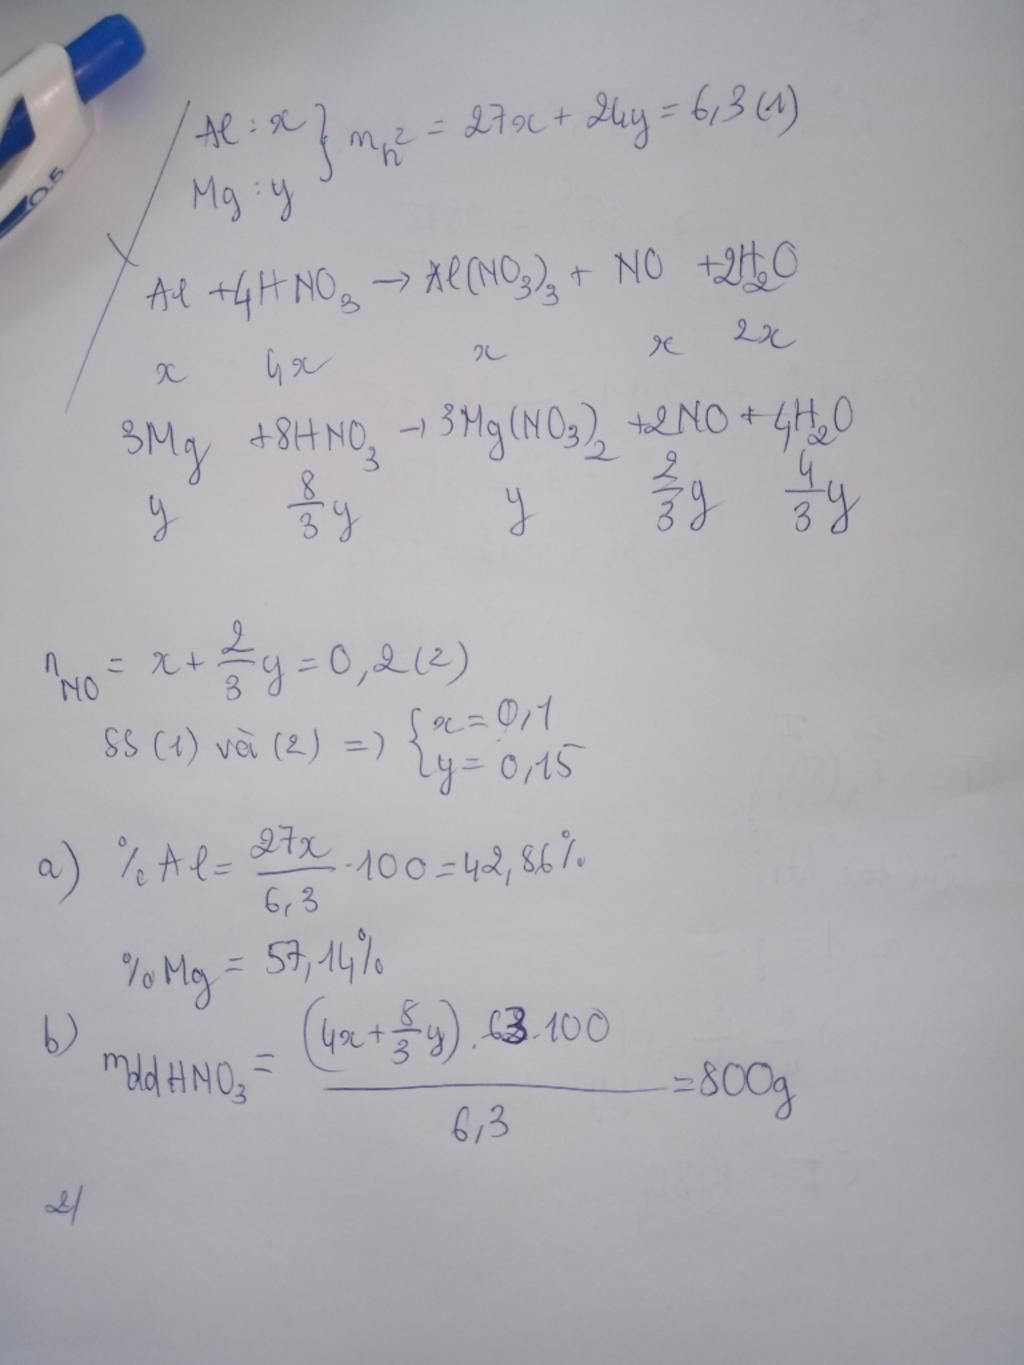 0.5
Al : x } m_h² = 27x + 24y = 6,3 (1)
Mg : y
Al + 4HNO₃ → Al(NO₃)₃ + NO + 2H₂O
x 4x x x 2x
3Mg + 8HNO₃ → 3Mg(NO₃)₂ + 2NO + 4H₂O
y 8/3 y y 2/3 y 4/3 y
n_NO = x + 2/3 y = 0,2 (2)
SS (1) và (2) => { x = 0,1
y = 0,15
a) % Al = 27x/6,3 . 100 = 42,86%
% Mg = 57,14%
b) mddHNO₃ = (4x + 8/3 y) . 63 . 100 / 6,3 = 800g
2/